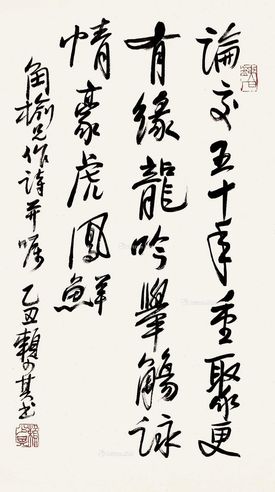 論交五十年重聚更
有緣龍吟舉觴詠
情豪虎鳳鮮
角榆兄作詩并囑
乙丑賴少其書